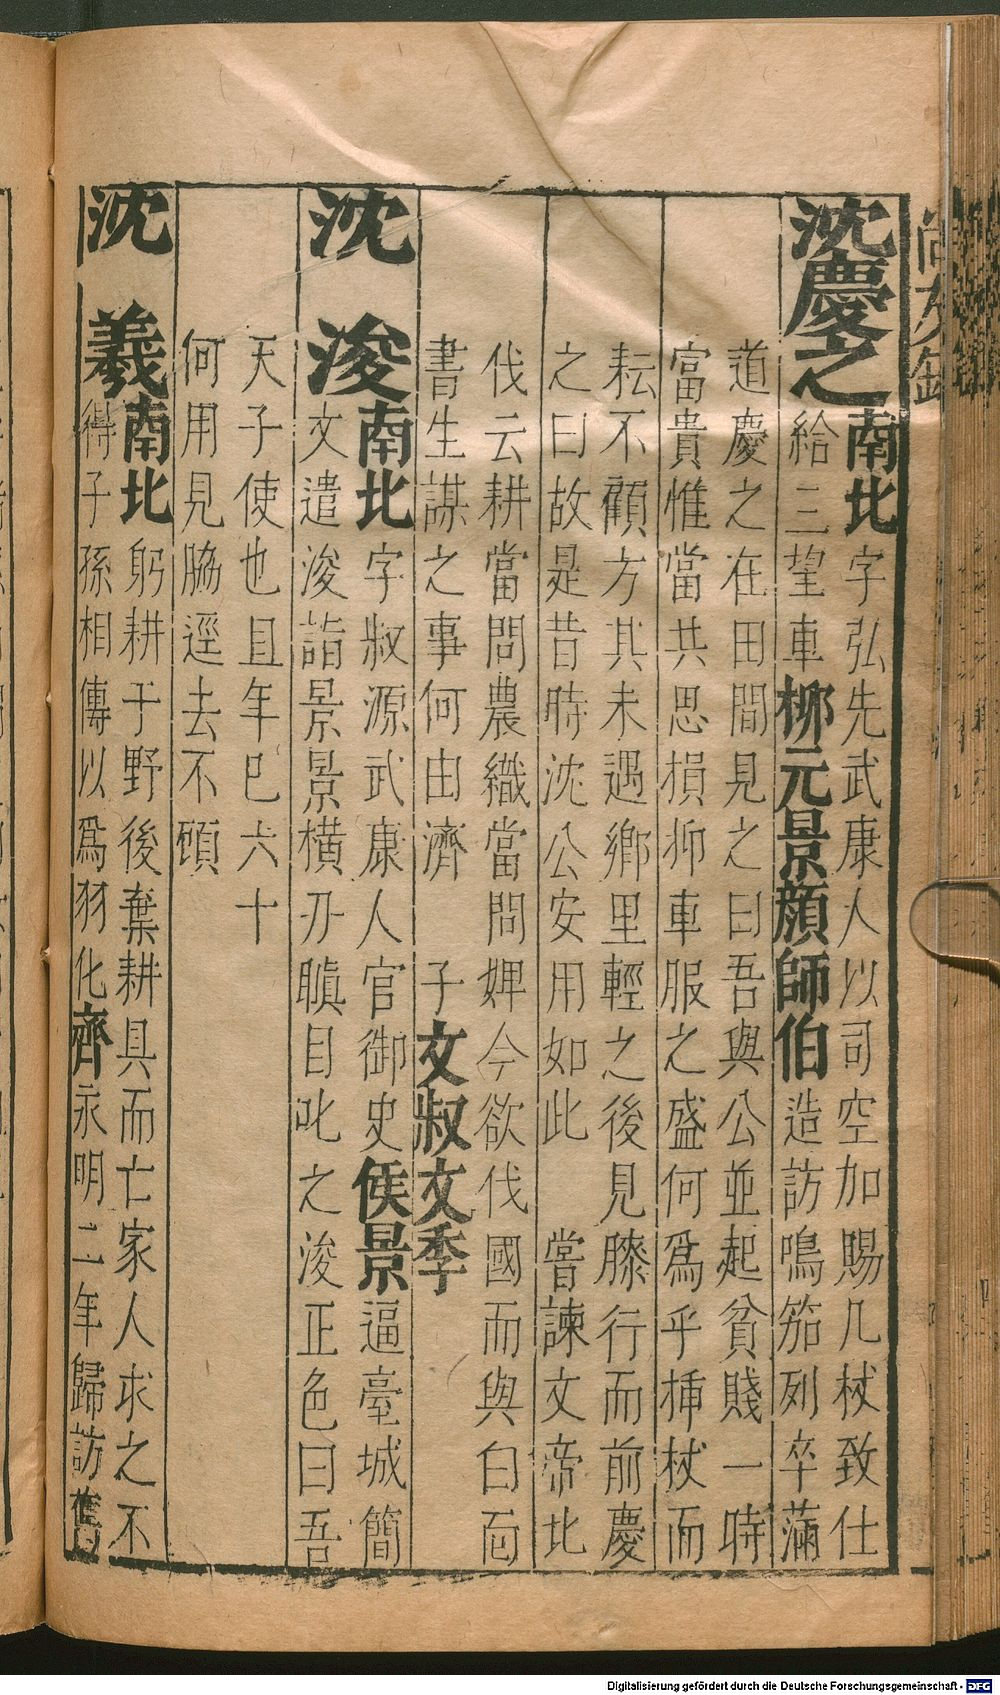 沈慶之南北字弘先武康人以司空加賜几杖致仕
給三望車柳元景顏師伯造訪鳴笳列卒滿
道慶之在田間見之曰吾與公並起貧賤一時
富貴惟當共思損抑車服之盛何爲乎揷杖而
耘不顧方其未遇鄉里輕之後見膝行而前慶
之曰故是昔時沈公安用如此 嘗諫文帝北
伐云耕當問農織當問婢今欲伐國而與白面
書生謀之事何由濟 子文叔文季
沈浚南北字叔源武康人官御史侯景逼臺城簡
文遣浚詣景景橫刃瞋目叱之浚正色曰吾
天子使也且年巳六十
何用見脇逕去不顧
沈羲南北躬耕于野後棄耕具而亡家人求之不
得子孫相傳以爲羽化齊永明二年歸訪舊以
Digitalisierung gefördert durch die Deutsche Forschungsgemeinschaft - DFG